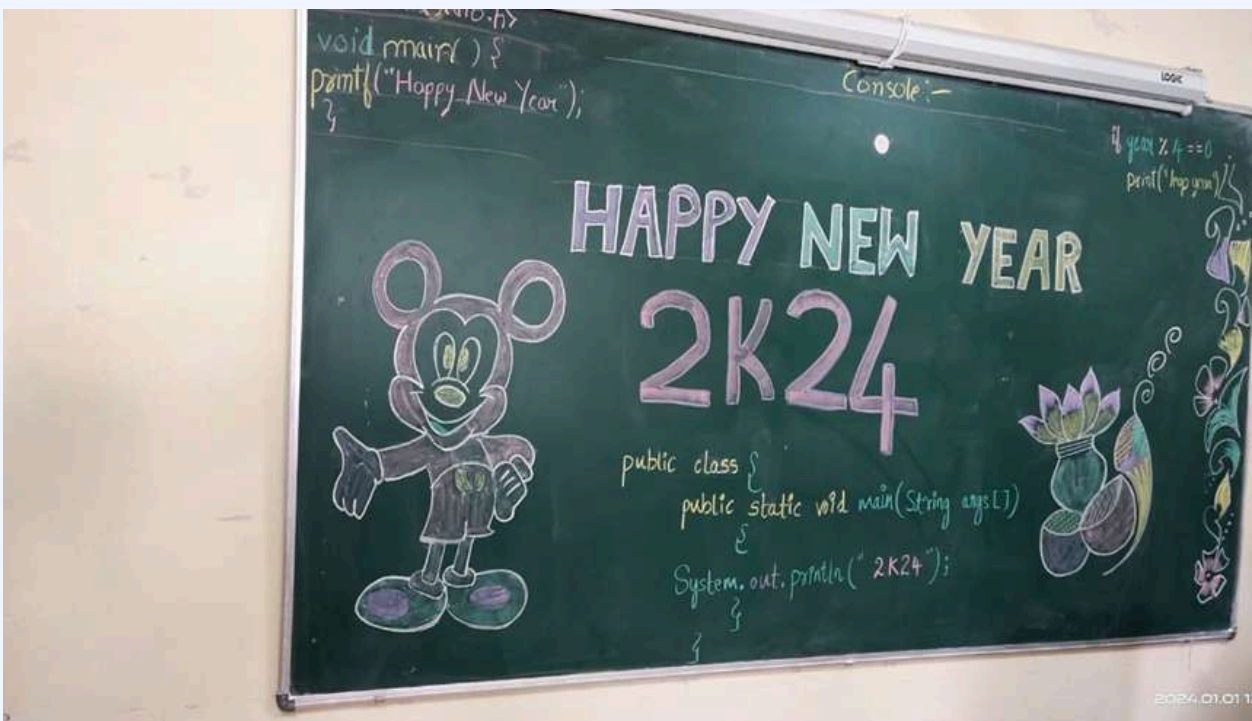 void main() {
printf("Happy New Year");
}
Console:-
LOGIC
if year % 4 == 0
print("leap year")
HAPPY NEW YEAR
2K24
public class {
public static void main(String args[])
{
System.out.println("2K24");
}
}
2024.01.01